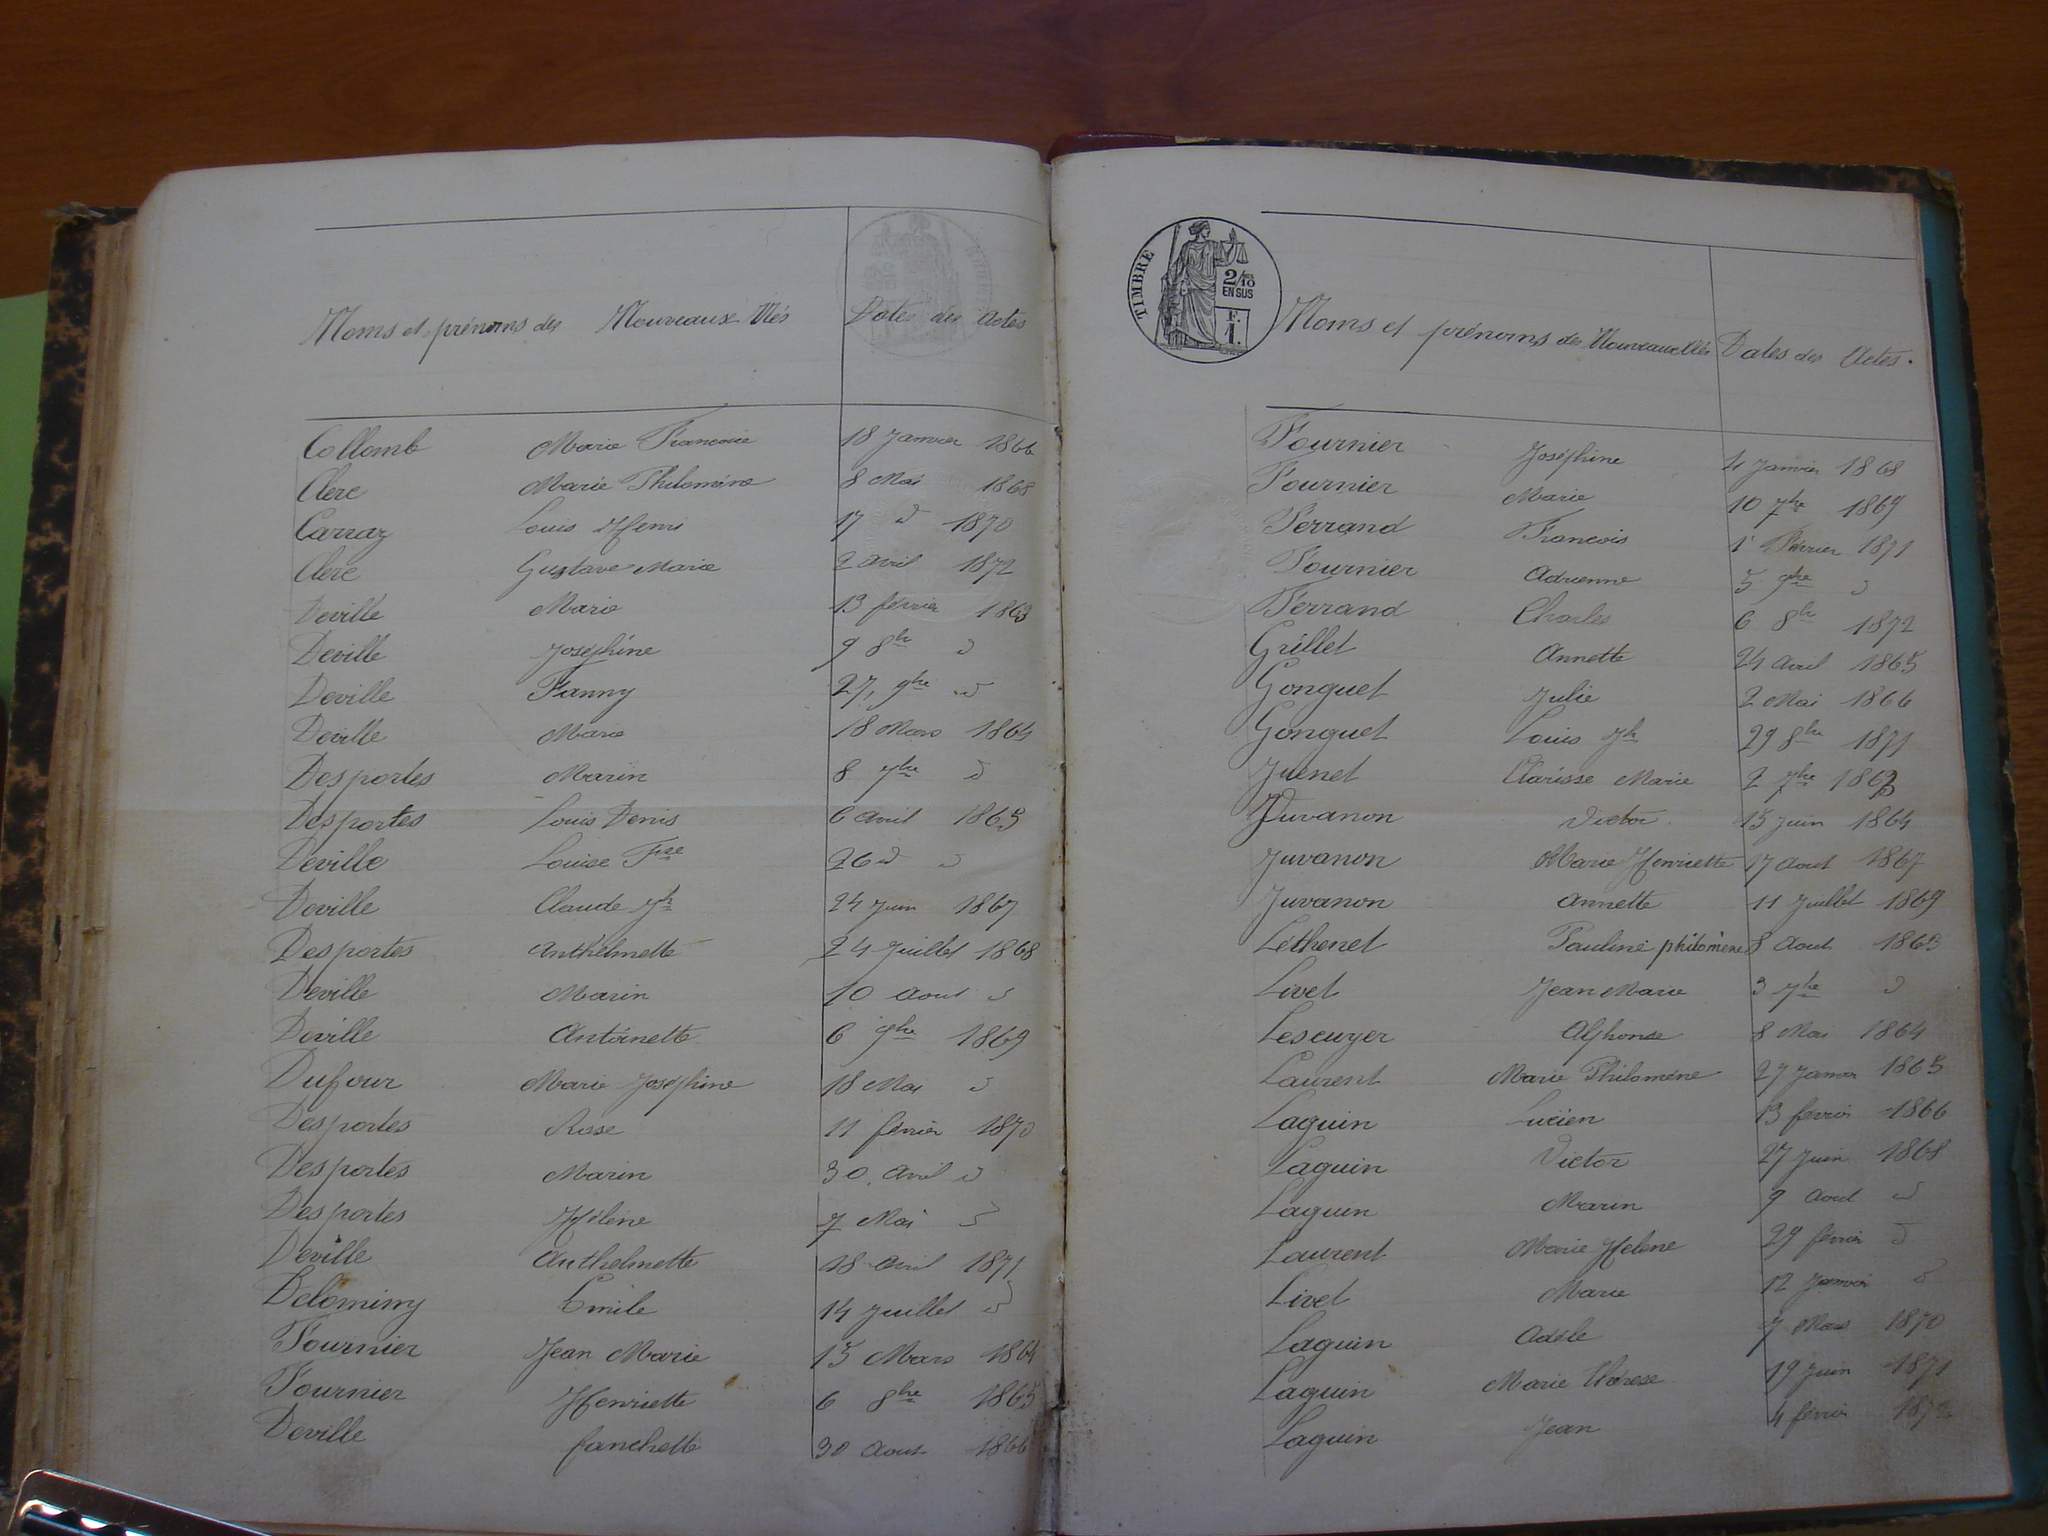 Noms et prénoms des Nouveaux Nés Dates des Actes
Collomb Marie Francoise 18 Janvier 1866
Clerc Marie Philomène 8 Mai 1868
Carraz Louis Henri 17 d 1870
Clerc Gustave Marie 2 avril 1872
Deville Marie 13 février 1863
Deville Joséphine 9 8bre d
Deville Fanny 27, 9bre d
Deville Marie 18 Mars 1864
Desportes Marin 8 7bre d
Desportes Louis Denis 6 avril 1865
Deville Louise Fse 26 d d
Deville Claude Jh 24 Juin 1867
Desportes Anthelmette 24 Juillet 1868
Deville Marin 10 Aout d
Deville Antoinette 6 9bre 1869
Dufour Marie Joséphine 18 Mai d
Desportes Rose 11 février 1870
Desportes Marin 30, Avril d
Desportes Hélène 7 Mai d
Deville Anthelmette 18 Avril 1871
Delominy Emile 14 Juillet d
Fournier Jean Marie 15 Mars 1864
Fournier Henriette 6 8bre 1865
Deville fanchette 30 Aout 1866
TIMBRE
2/10
EN SUS
F.
1.
Noms et prénoms des Nouveaux Nés Dates des Actes.
Fournier Joséphine 4 Janvier 1868
Fournier Marie 10 7bre 1869
Ferrand Francois 1 Février 1871
Fournier Adrienne 5 9bre d
Ferrand Charles 6 8bre 1872
Grillet Annette 24 Avril 1865
Gonguet Julie 2 Mai 1866
Gonguet Louis Jh 29 8bre 1871
Juenet Clarisse Marie 2 7bre 1863
Juvanon Victor 15 Juin 1864
Juvanon Marie Henriette 17 Aout 1867
Juvanon Annette 11 Juillet 1869
Léthenet Pauline philomène 8 Aout 1863
Livet Jean Marie 3 7bre d
Lescuyer Alphonse 8 Mai 1864
Laurent Marie Philomène 27 Janvier 1865
Laguin Lucien 13 février 1866
Laguin Victor 27 Juin 1868
Laguin Marin 9 Aout d
Laurent Marie Helene 29 février d
Livet Marie 12 Janvier d
Laguin Adèle 7 Mars 1870
Laguin Marie Thérese 19 Juin 1871
Laguin Jean 4 février 1872